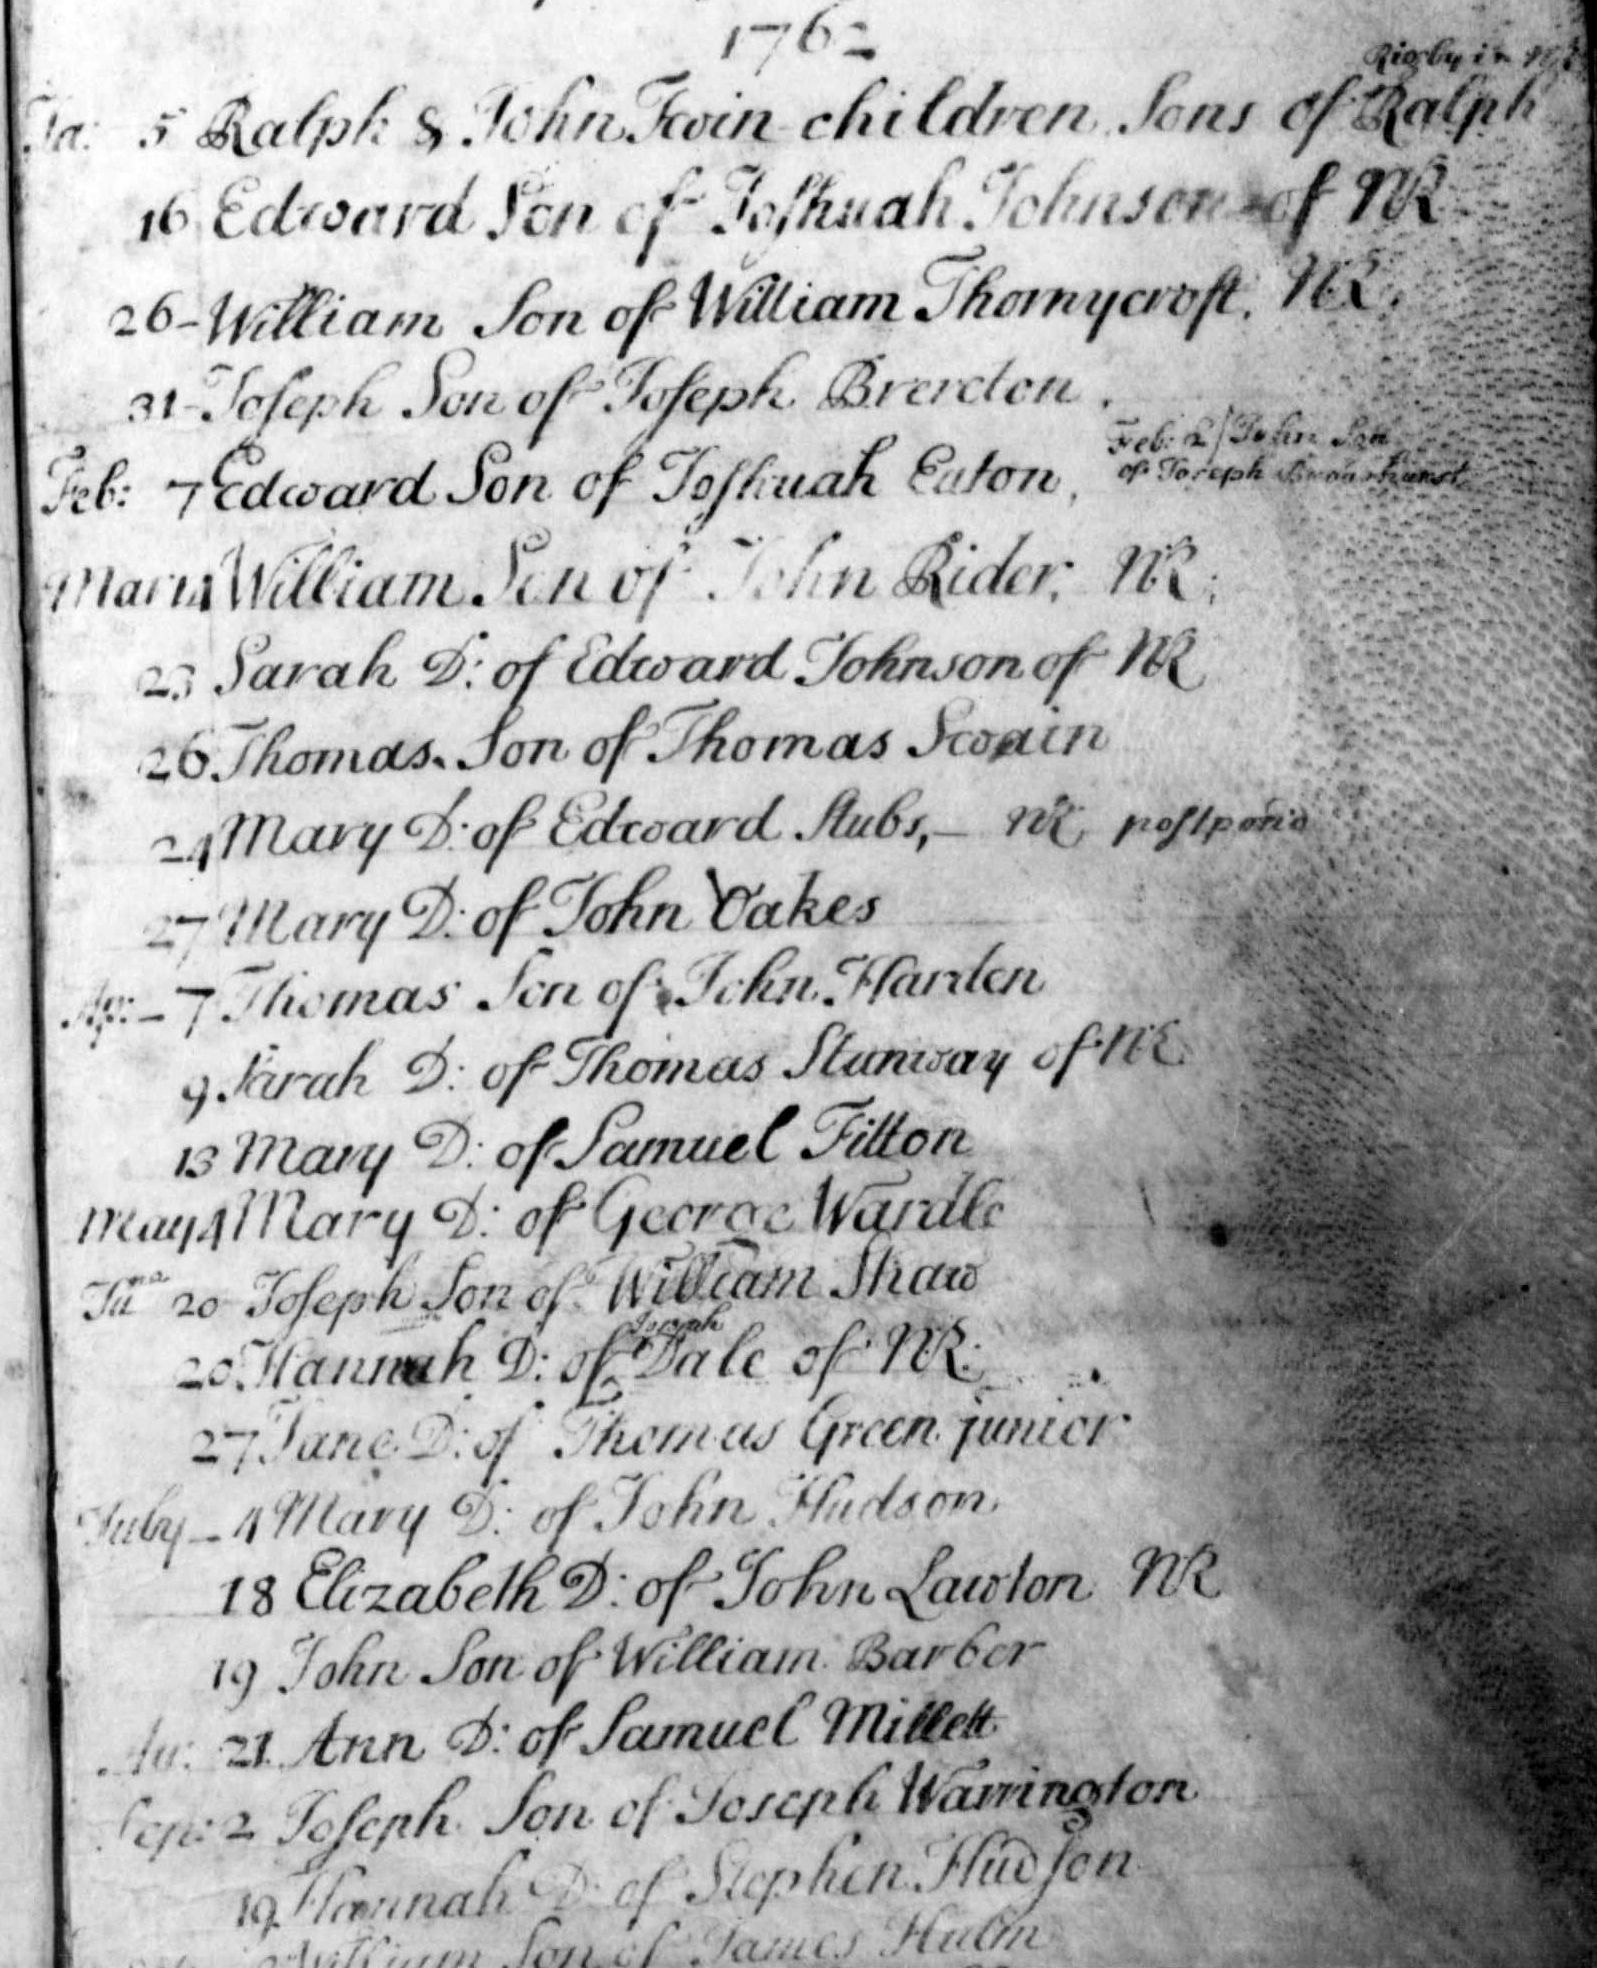 1762
Rigby in NR
Ja: 5 Ralph & John Twin children Sons of Ralph
16 Edward Son of Joshuah Johnson of NR
26 - William Son of William Thornycroft. NR.
31 - Joseph Son of Joseph Brereton.
Feb: 2 / John Son
of Joseph
Feb: 7 Edward Son of Joshuah Eaton,
Mar: 14 William Son of John Rider, NR;
23 Sarah D: of Edward Johnson of NR
26 Thomas Son of Thomas Swain
24 Mary D: of Edward Stubs, - NR postpon'd
27 Mary D: of John Oakes
Ap: - 7 Thomas Son of John Harden
9 Sarah D: of Thomas Stanway of NR
13 Mary D: of Samuel Fitton
May 4 Mary D: of George Wardle
Ju ne 20 Joseph Son of William Shaw
Joseph
20 Hannah D: of Dale of NR:
27 Jane D: of Thomas Green junior
July - 4 Mary D: of John Hudson.
18 Elizabeth D: of John Lawton NR
19 John Son of William Barber
Au: 21 Ann D: of Samuel Millett
Sep: 2 Joseph Son of Joseph Warrington
19 Hannah D: of Stephen Hudson
William Son of James Hulm